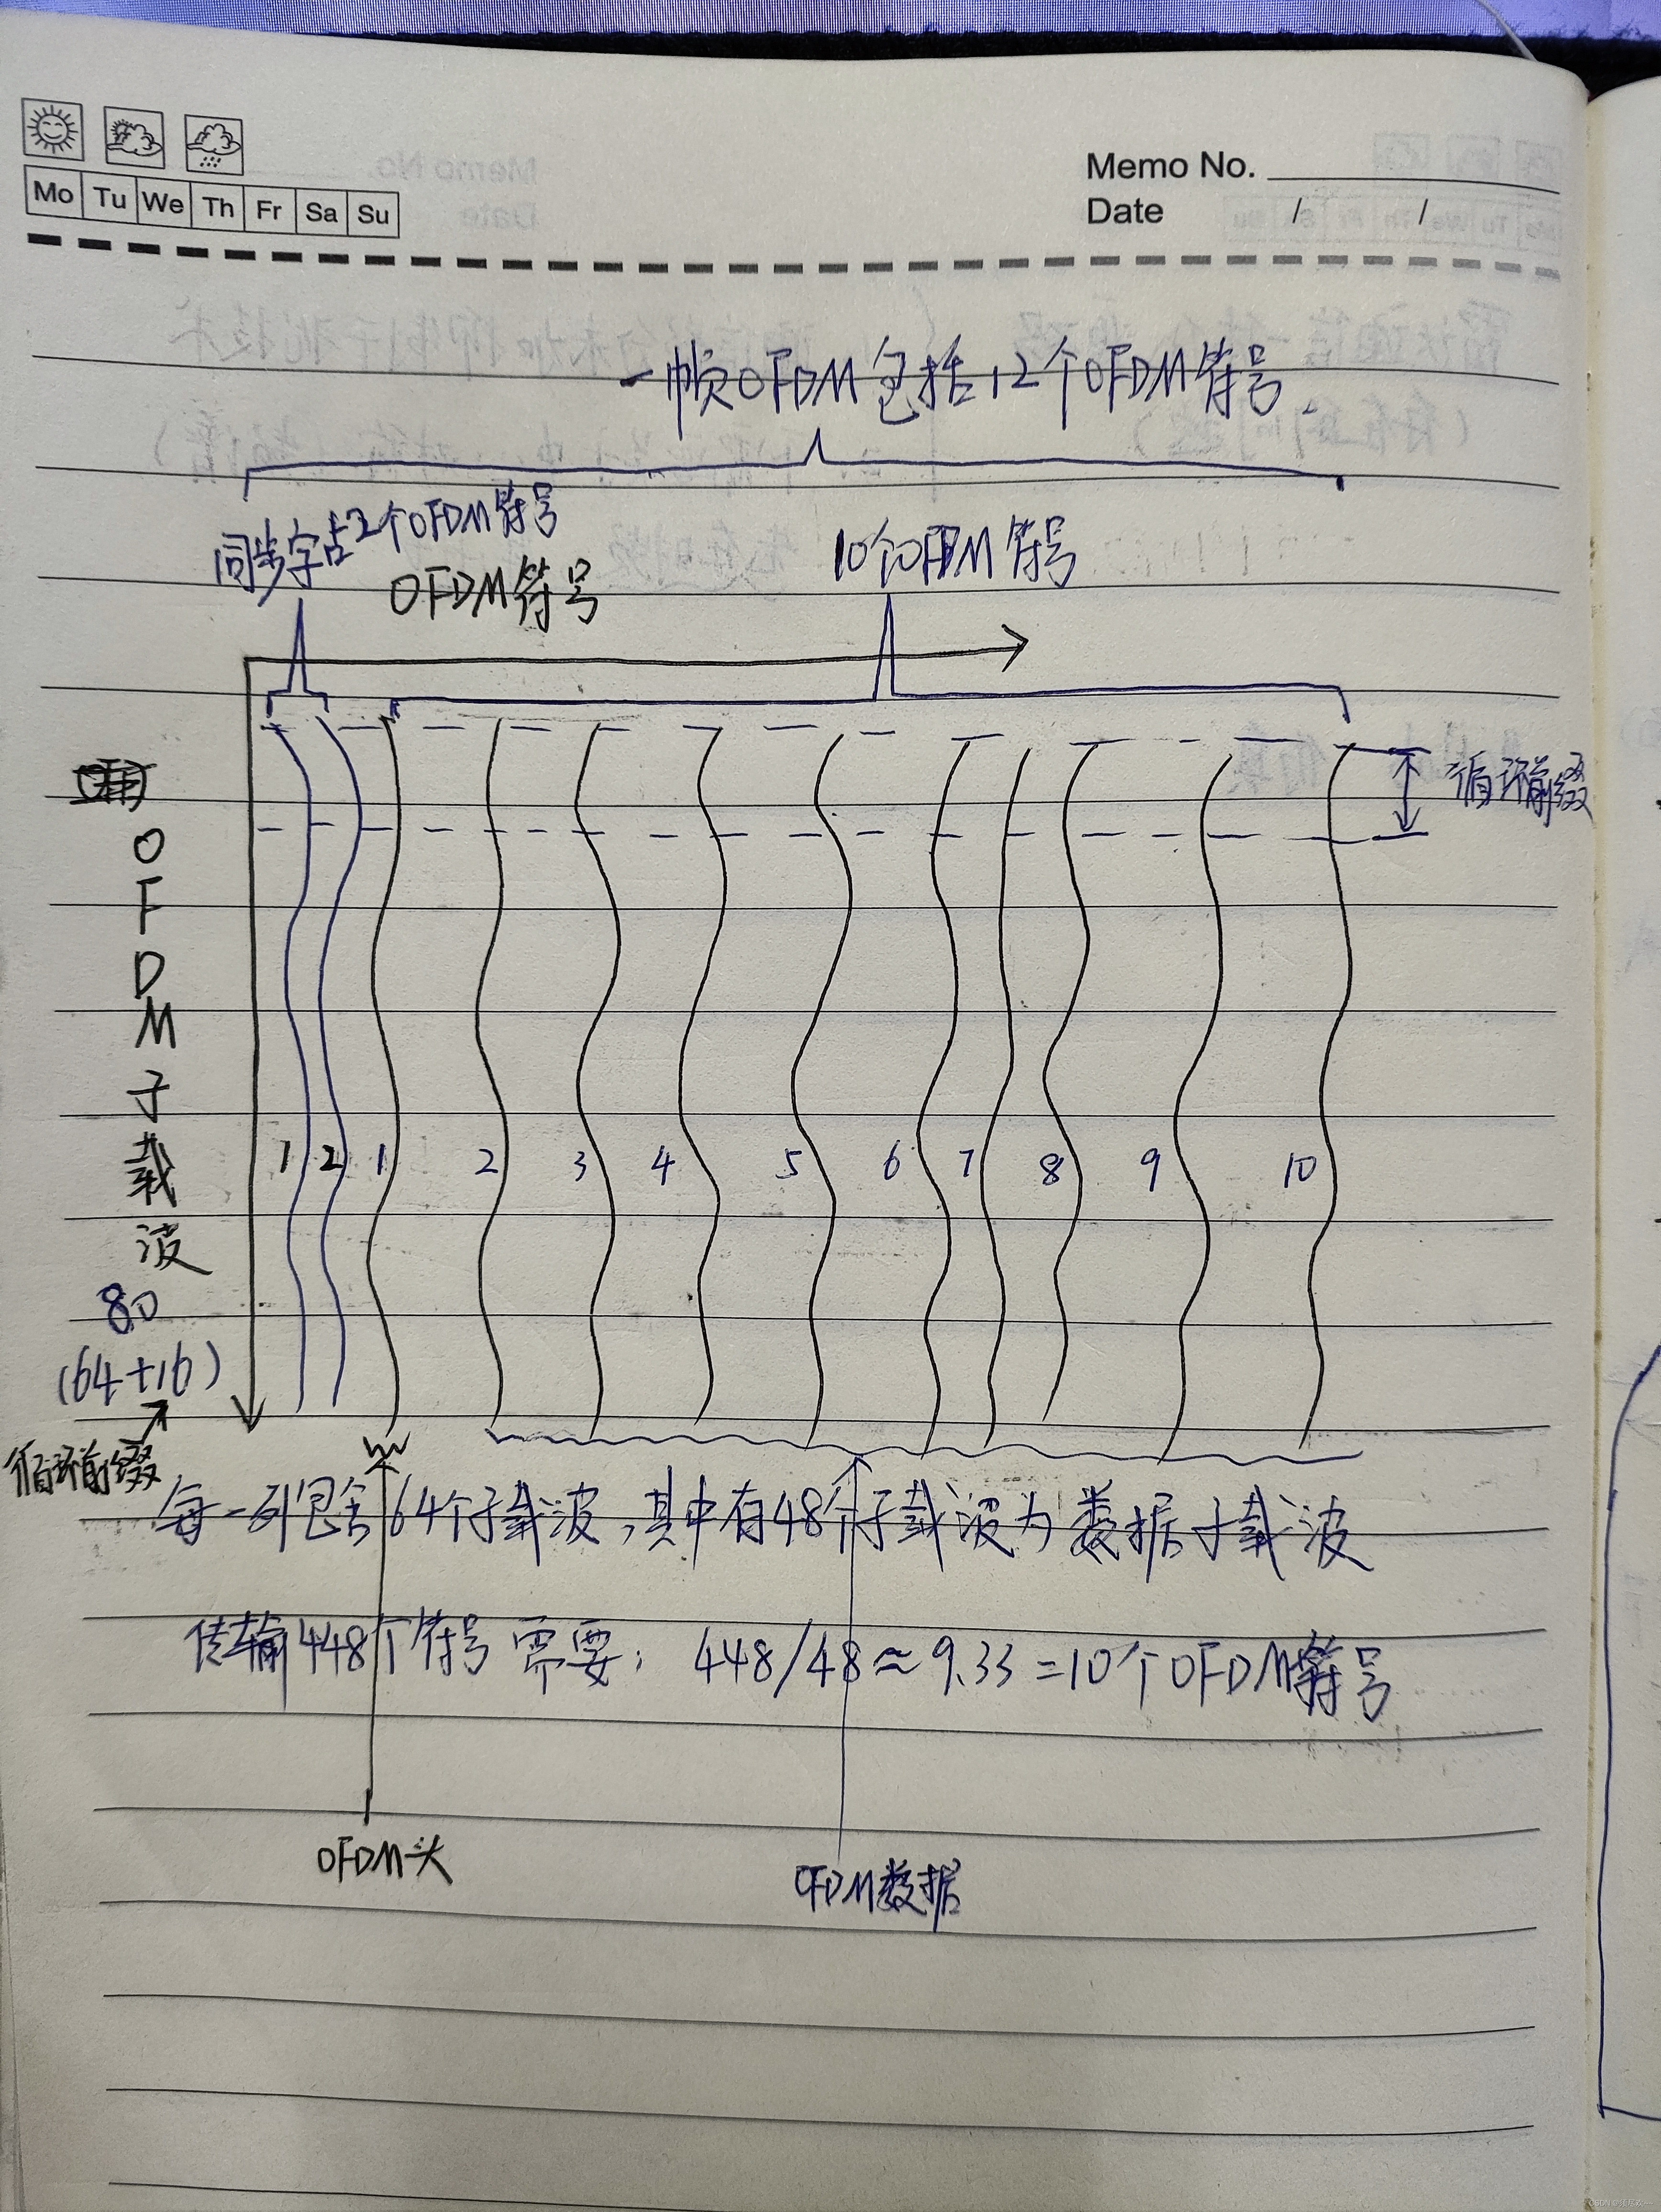 Mo Tu We Th Fr Sa Su
Memo No.
Date / /
一帧OFDM包括12个OFDM符号.
同步字占2个OFDM符号
10个OFDM符号
OFDM符号
循环前缀
OFDM子载波
80
(64+16)
循环前缀
1 2 1 2 3 4 5 6 7 8 9 10
每一列包含64个子载波,其中有48个子载波为数据子载波
传输448个符号需要: 448/48≈9.33=10个OFDM符号
OFDM头
OFDM数据